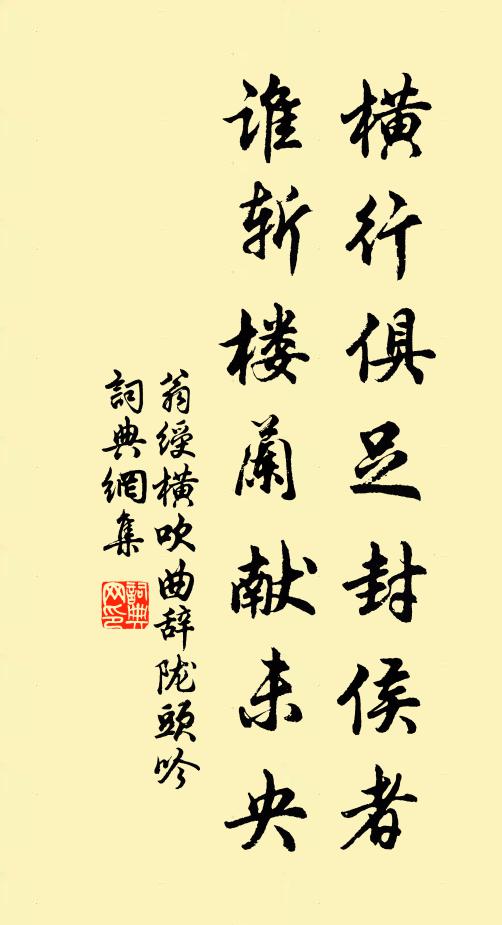 横行俱足封侯者
谁斩楼蘭献未央
翁綬橫吹曲辞陇頭吟
詞典網集
詞典
网印